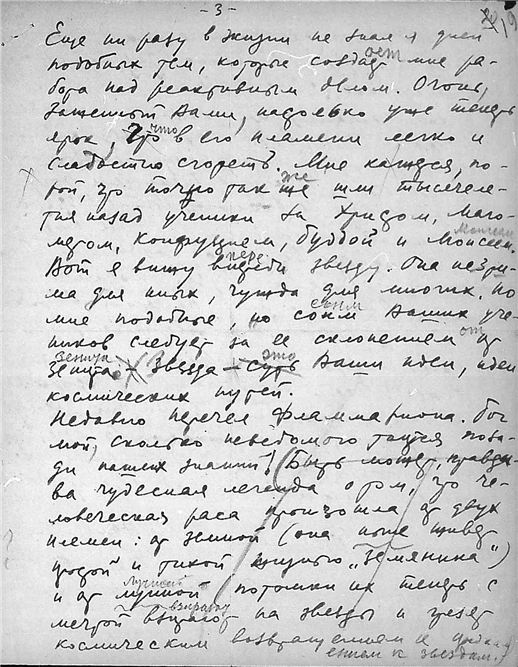 - 3 -
Еще ни разу в жизни не знал я дней
подобных тем, которые создает мне ра-
бота над реактивным делом. Огонь,
зажженный Вами, надолько уже теперь
ярок, что в его пламени легко и
сладостно сгореть. Мне кажется, по-
рой, что точно так же шли тысячеле-
тия назад ученики за Христом, Маго-
метом, Конфуцием, Буддой и Моисеем.
Вот я вижу впереди звезду. Она незри-
ма для иных, чужда для многих, но
мне подобные, но сонм Ваших уче-
ников следует за ее склонением от
зенита. Звезда - это Ваши идеи, идеи
космических путей.
Недавно перечел Фламмариона. Бог
мой, сколько неведомого таится поза-
ди наших знаний! Быть может, правди-
ва чудесная легенда о том, что че-
ловеческая раса произошла от двух
племен: от земной (она ныне живет
простой и тихой жизнью „Землянина")
и от лунной - потомки их теперь с
мечтой взирают на звезды и грезят
космическим возвращением
к звездам.